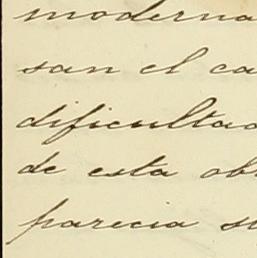 moderna
san el ca
dificultad
de esta ob
parecia s